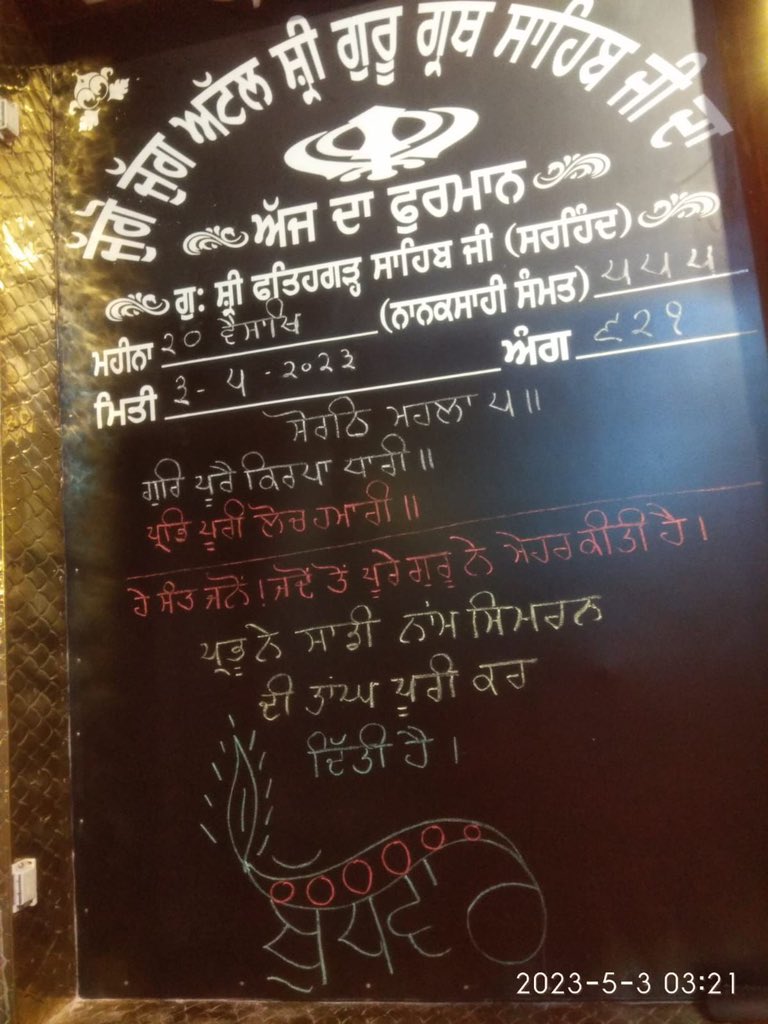 ਜੁੱਗੋ ਜੁੱਗ ਅਟੱਲ ਸ਼੍ਰੀ ਗੁਰੂ ਗ੍ਰੰਥ ਸਾਹਿਬ ਜੀ ਦਾ
ਅੱਜ ਦਾ ਫੁਰਮਾਨ
ਗੁ: ਸ਼੍ਰੀ ਫਤਿਹਗੜ੍ਹ ਸਾਹਿਬ ਜੀ (ਸਰਹਿੰਦ)
ਮਹੀਨਾ ੨੦ ਵੈਸਾਖਿ (ਨਾਨਕਸਾਹੀ ਸੰਮਤ) ੫੫੫
ਮਿਤੀ ੩-੫-੨੦੨੩ ਅੰਗ ੬੨੧
ਸੋਰਠਿ ਮਹਲਾ ੫॥
ਗੁਰਿ ਪੂਰੈ ਕਿਰਪਾ ਧਾਰੀ॥
ਪ੍ਰਭਿ ਪੂਰੀ ਲੋਚ ਹਮਾਰੀ॥
ਹੇ ਸੰਤ ਜਨੋਂ! ਜਦੋਂ ਤੋਂ ਪੂਰੇ ਗੁਰੂ ਨੇ ਮੇਹਰ ਕੀਤੀ ਹੈ।
ਪ੍ਰਭੂ ਨੇ ਸਾਡੀ ਨਾਂਮ ਸਿਮਰਨ
ਦੀ ਤਾਂਘ ਪੂਰੀ ਕਰ
ਦਿੱਤੀ ਹੈ।
2023-5-3 03:21